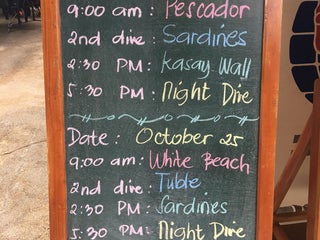 9:00 am: Pescador
2nd dive: Sardines
2:30 PM: Kasay Wall
5:30 PM: Night Dive
Date: October 25
9:00 am: White Beach
2nd dive: Tuble
2:30 PM: Sardines
5:30 PM: Night Dive